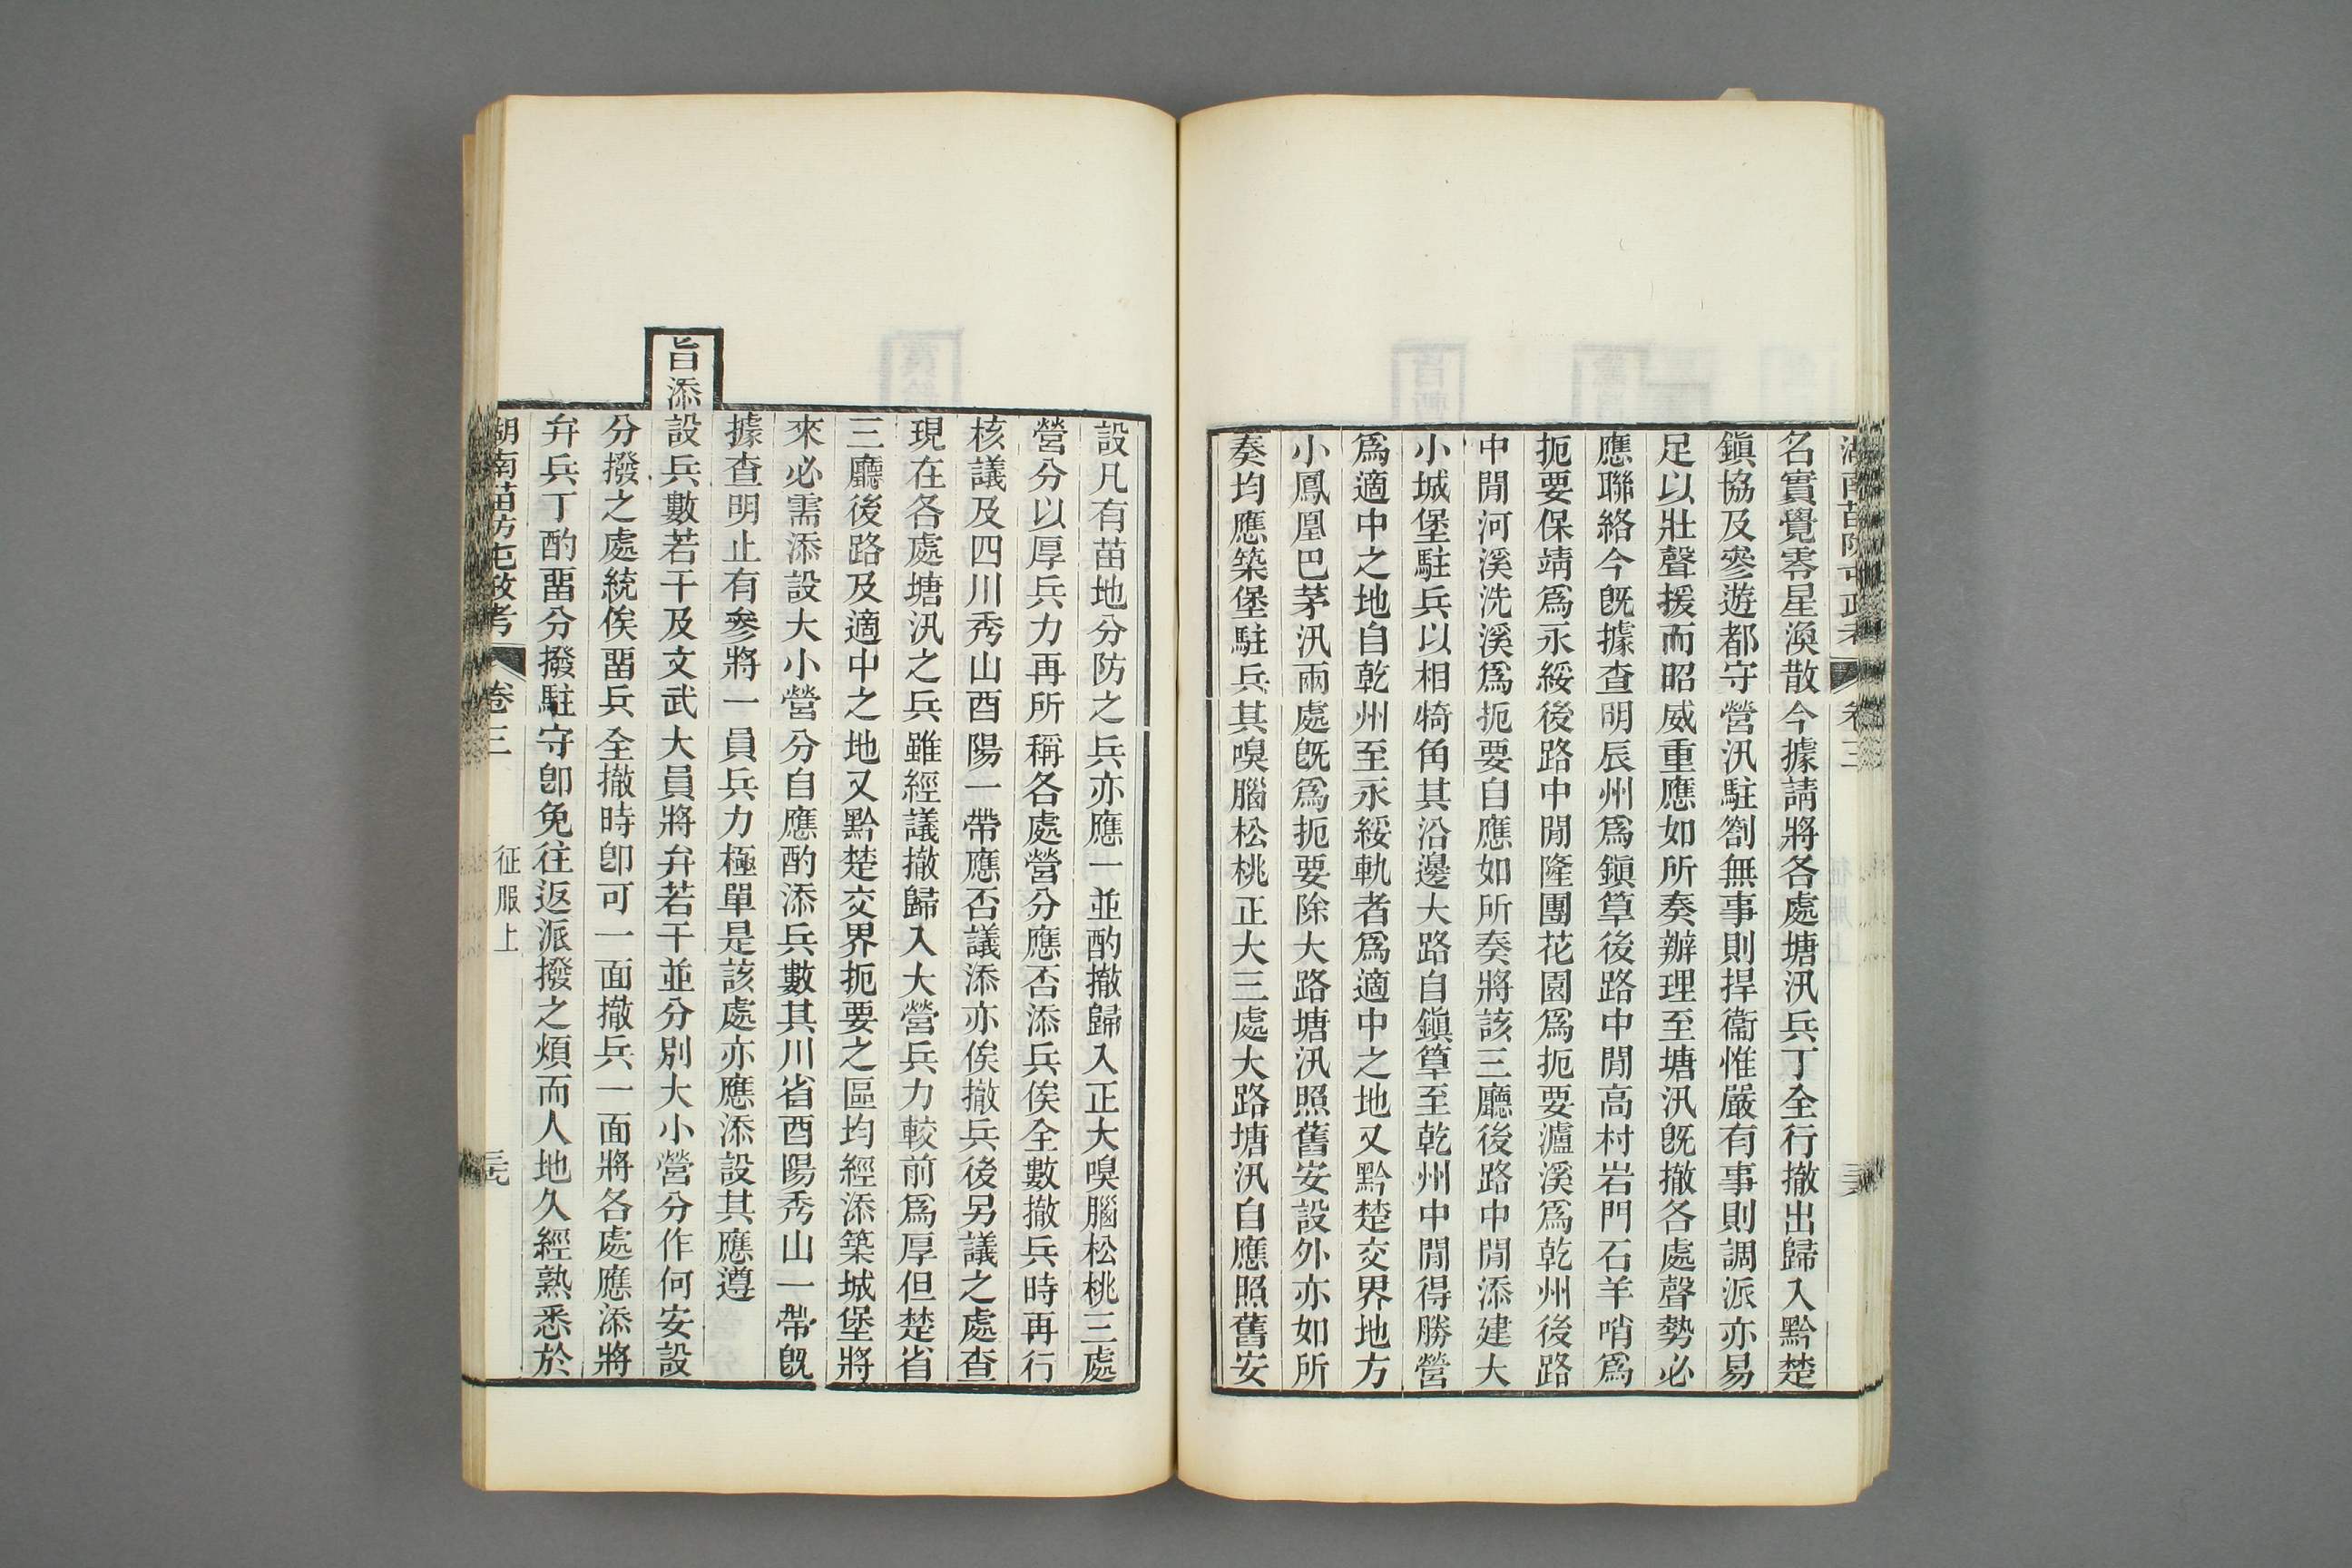 名實覺零星渙散今據請將各處塘汛兵丁全行撤出歸入黔楚
鎭協及參遊都守營汛駐劄無事則捍衞惟嚴有事則調派亦易
足以壯聲援而昭威重應如所奏辦理至塘汛旣撤各處聲勢必
應聯絡今旣據查明辰州爲鎭筸後路中閒高村岩門石羊哨爲
扼要保靖爲永綏後路中閒隆團花園爲扼要瀘溪爲乾州後路
中閒河溪洗溪爲扼要自應如所奏將該三廳後路中閒添建大
小城堡駐兵以相犄角其沿邊大路自鎭筸至乾州中閒得勝營
爲適中之地自乾州至永綏軌者爲適中之地又黔楚交界地方
小鳳凰巴茅汛兩處旣爲扼要除大路塘汛照舊安設外亦如所
奏均應築堡駐兵其嗅腦松桃正大三處大路塘汛自應照舊安
設凡有苗地分防之兵亦應一並酌撤歸入正大嗅腦松桃三處
營分以厚兵力再所稱各處營分應否添兵俟全數撤兵時再行
核議及四川秀山酉陽一帶應否議添亦俟撤兵後另議之處查
現在各處塘汛之兵雖經議撤歸入大營兵力較前爲厚但楚省
三廳後路及適中之地又黔楚交界扼要之區均經添築城堡將
來必需添設大小營分自應酌添兵數其川省酉陽秀山一帶旣
據查明止有參將一員兵力極單是該處亦應添設其應遵
旨添設兵數若干及文武大員將弁若干並分別大小營分作何安設
分撥之處統俟畱兵全撤時卽可一面撤兵一面將各處應添將
弁兵丁酌畱分撥駐守卽免往返派撥之煩而人地久經熟悉於
湖南苗防屯政考 卷三 征服上